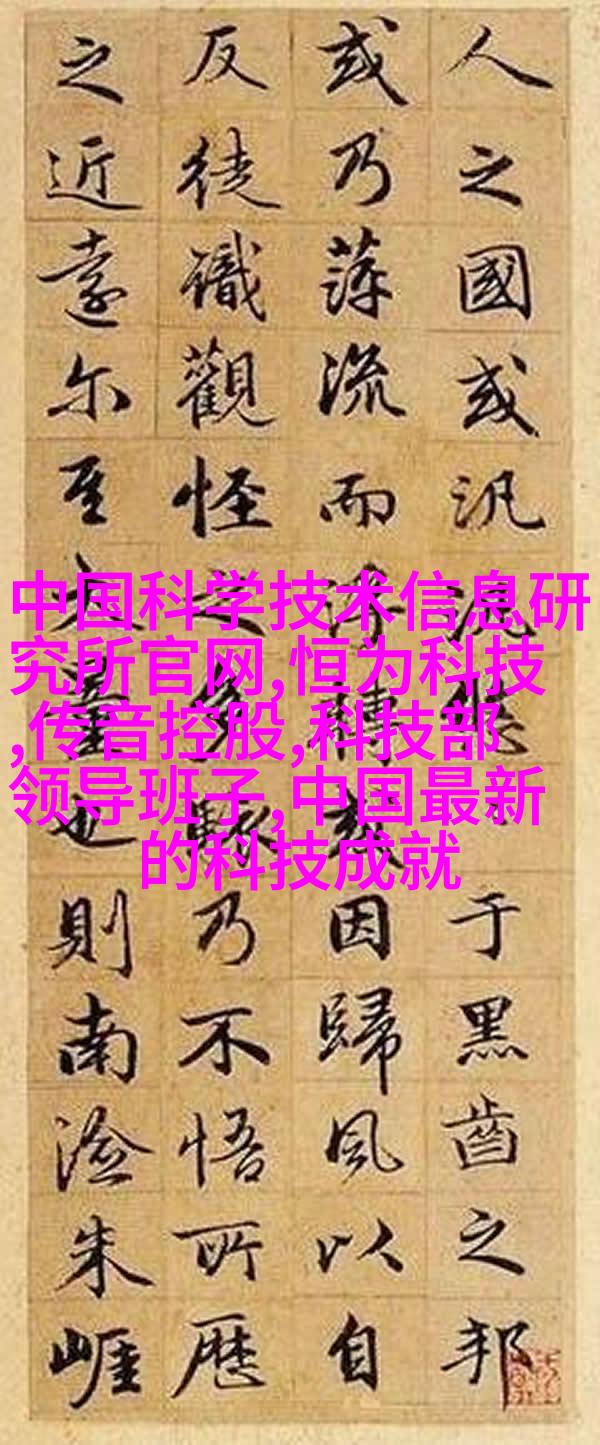 人之國或汎汎悠〻于黑齒之邦
或乃萍流而浮轉或因歸風以自
反徒識觀怪之多駭乃不悟所歷
之近遠尔其大量也則南澰朱崕
中国科学技术信息研
究所官网,恒为科技
,传音控股,科技部
领导班子,中国最新
的科技成就